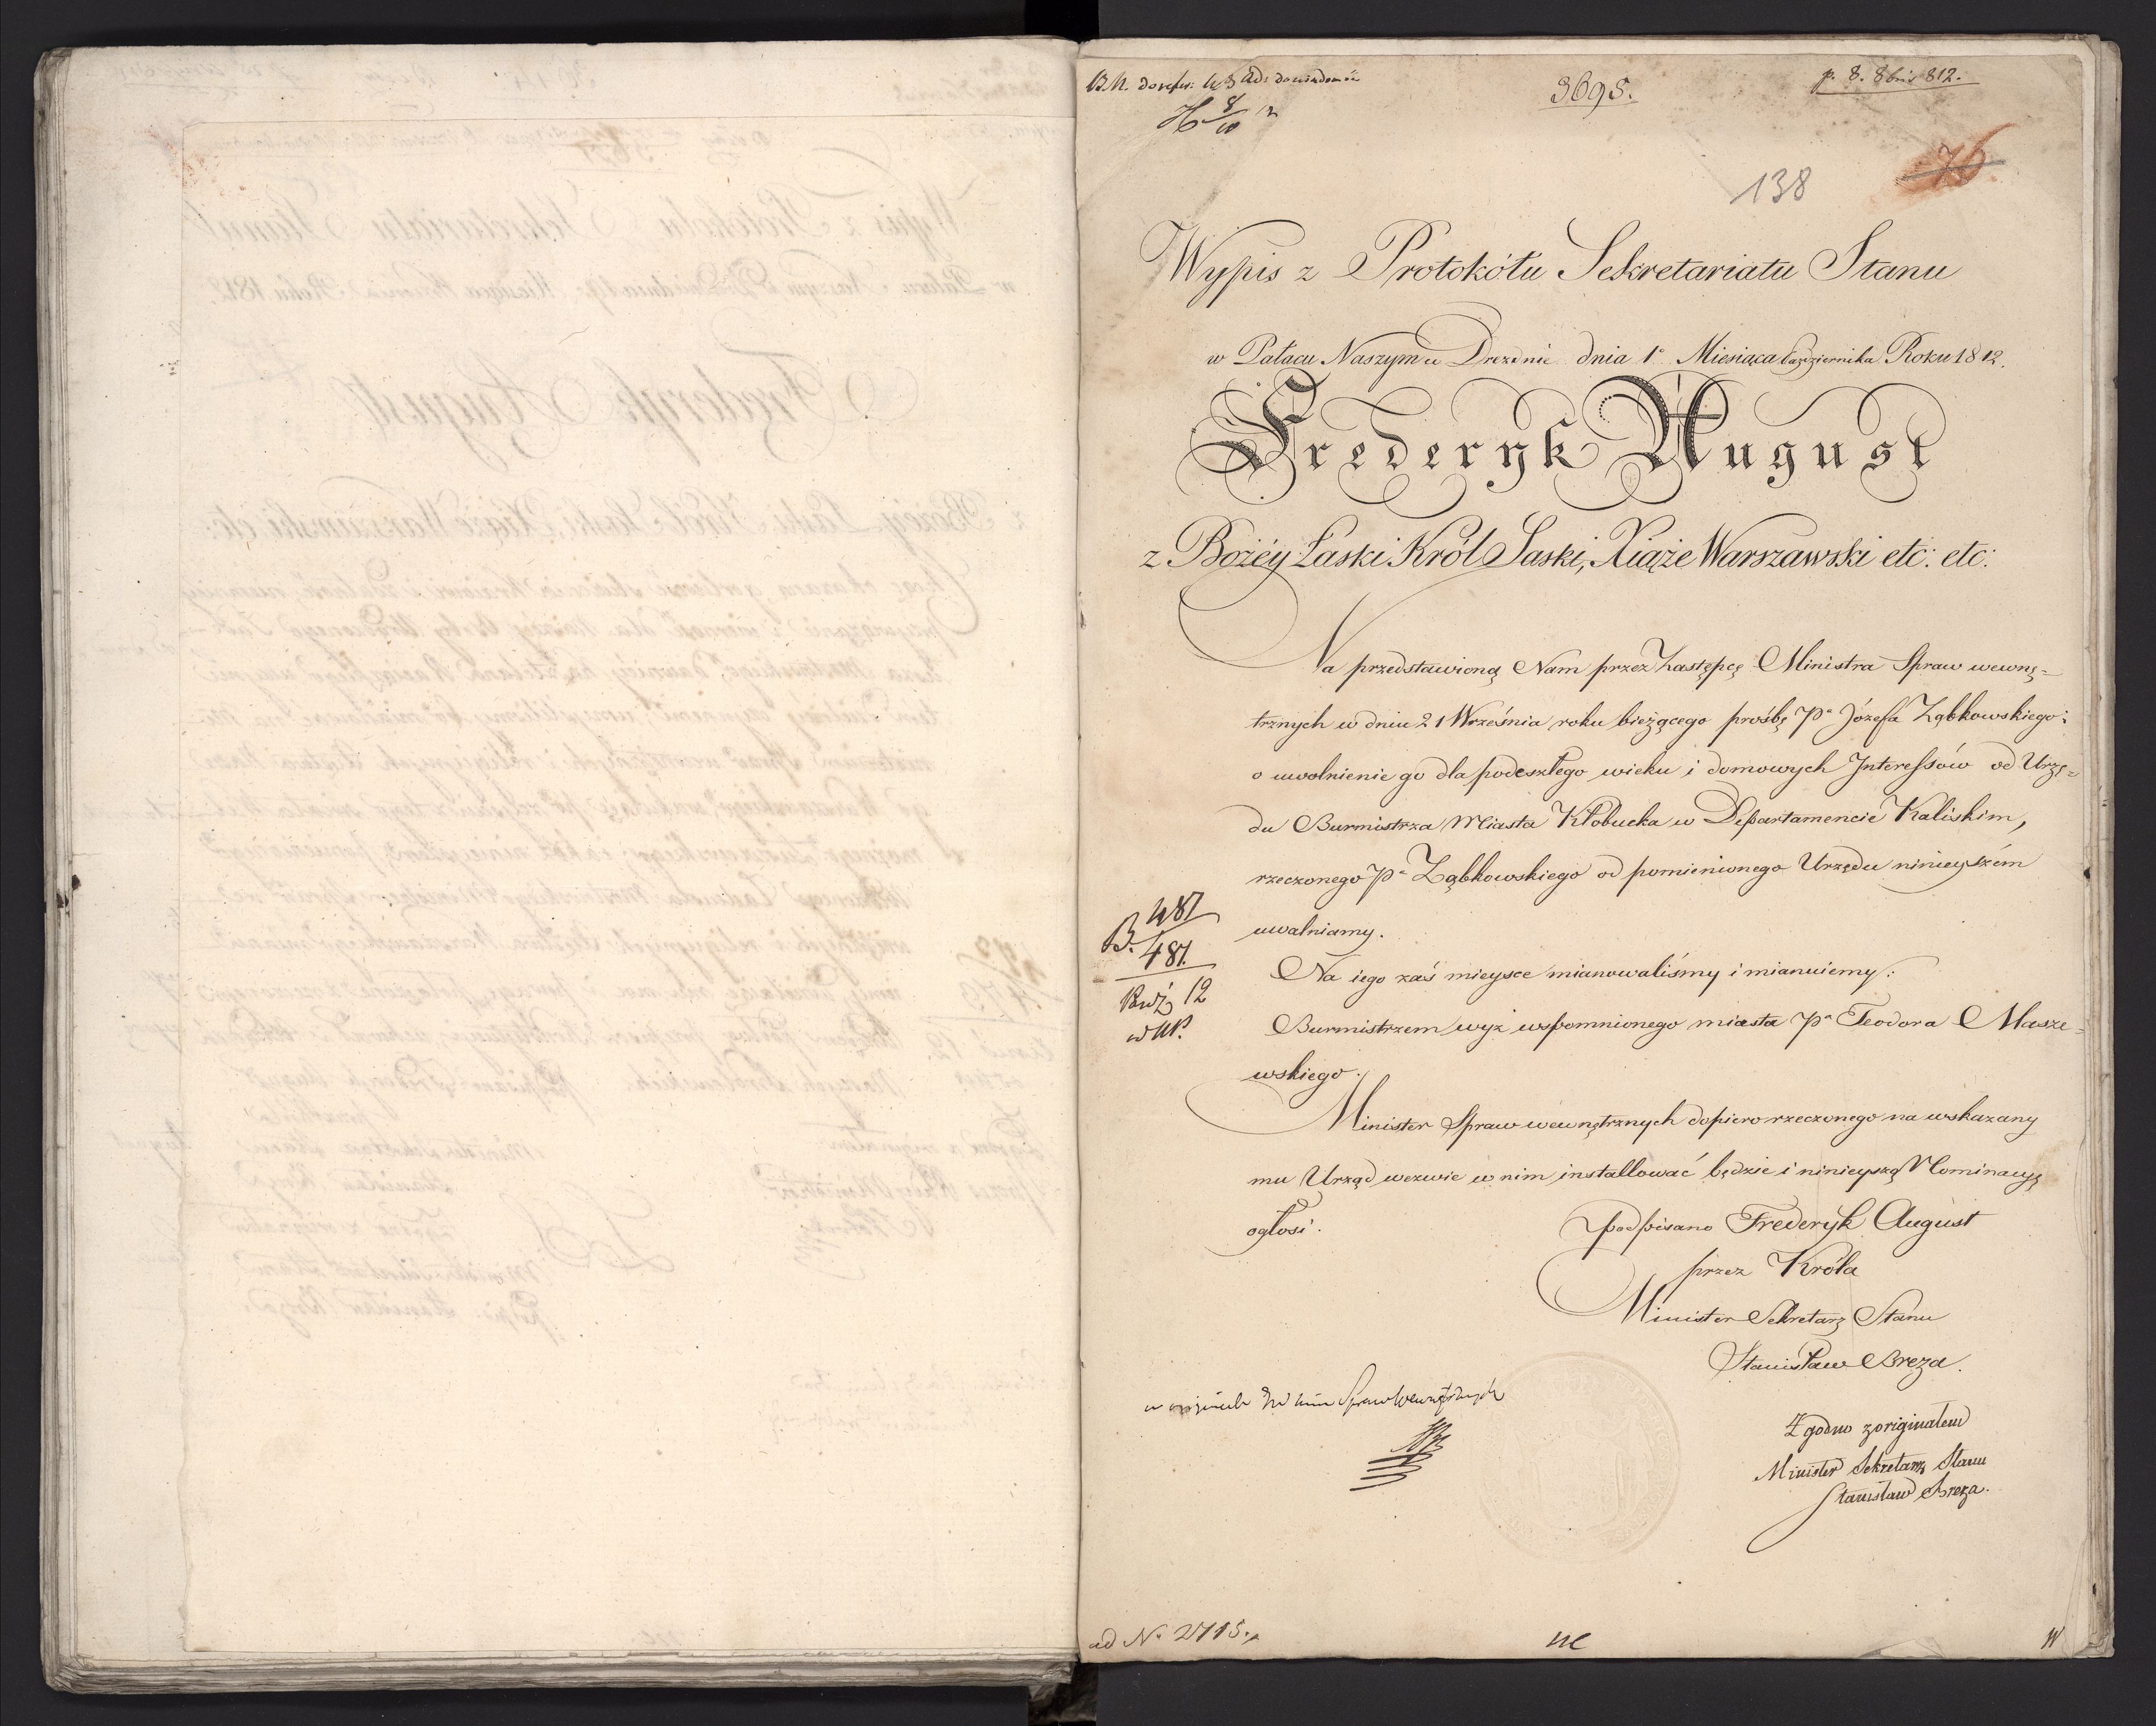 3695.
p. 8. 8bris 812.
138
76
Wypis z Protokółu Sekretariatu Stanu
w Pałacu Naszym w Dreznie dnia 1o Miesiąca Października Roku 1812.
Frederyk August
z Bożéy Łaski Król Saski, Xiąże Warszawski etc: etc:
Na przedstawioną Nam przez Zastępcę Ministra Spraw wewnę=
trznych w dniu 21 Września roku bieżącego prośbę Pa Józefa Ząbkowskiego:
o uwolnienie go dla podeszłego wieku i domowych Interessów od Urzę=
du Burmistrza Miasta Kłobucka w Departamencie Kaliskim,
rzeczonego Pa Ząbkowskiego od pomienionego Urzędu ninieyszém
uwalniamy.
Na iego zaś mieysce mianowaliśmy i mianuiemy:
Burmistrzem wyż wspomnionego miasta Pa Teodora Masze=
wskiego.
Minister Spraw wewnętrznych dopiero rzeczonego na wskazany
mu Urząd wezwie w nim installować będzie i ninieyszą Nominacyą
ogłosi.
B. 487
481.
12
podpisano Frederyk August
przez Króla
Minister Sekretarz Stanu
Stanisław Breza.
Spraw Wewnętrznych
Zgodno z originałem
Minister Sekretarz Stanu
Stanisław Breza.
ad No 2715.